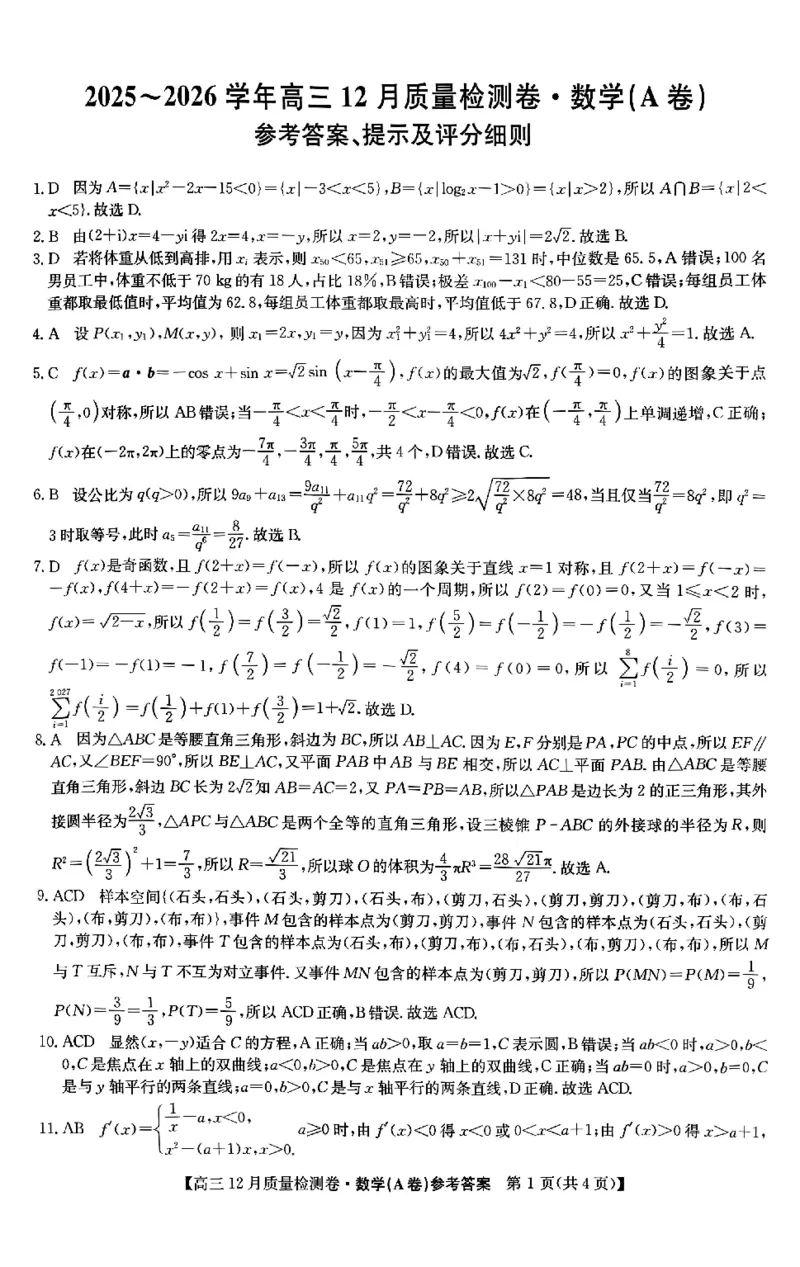 2025～2026 学年高三 12 月质量检测卷・数学(A 卷)
参考答案、提示及评分细则
1. D 因为 A={x|x²−2x−15<0}={x|−3<x<5},B={x|log₂x−1>0}={x|x>2},所以 A∩B={x|2<
x<5}. 故选 D.
2. B 由(2+i)x=4−yi 得 2x=4,x=−y,所以 x=2,y=−2,所以|x+yi|=2√2. 故选 B.
3. D 若将体重从低到高排,用 xᵢ 表示,则 x₅₀<65,x₅₁≥65,x₅₀+x₅₁=131 时,中位数是 65.5,A 错误;100 名
男员工中,体重不低于 70 kg 的有 18 人,占比 18%,B 错误;极差 x₁₀₀−x₁<80−55=25,C 错误;每组员工体
重都取最低值时,平均值为 62.8,每组员工体重都取最高时,平均值低于 67.8,D 正确. 故选 D.
4. A 设 P(x₁,y₁),M(x,y), 则 x₁=2x,y₁=y,因为 x₁²+y₁²=4,所以 4x²+y²=4,所以 x²+y²/4=1. 故选 A.
5. C f(x)=a・b=−cos x+sin x=√2 sin (x−π/4),f(x)的最大值为√2,f(π/4)=0,f(x)的图象关于点
(π/4,0)对称,所以 AB 错误;当−π/4<x<π/4时,−π/2<x−π/4<0,f(x)在(−π/4,π/4)上单调递增,C 正确;
f(x)在(−2π,2π)上的零点为−7π/4,−3π/4,π/4,5π/4,共 4 个,D 错误. 故选 C.
6. B 设公比为 q(q>0),所以 9a₉+a₁₃=9a₁₁/q²+a₁₁q²=72/q²+8q²≥2√(72/q²×8q²)=48,当且仅当72/q²=8q²,即 q²=
3 时取等号,此时 a₅=a₁₁/q⁶=8/27. 故选 B.
7. D f(x)是奇函数,且 f(2+x)=f(−x),所以 f(x)的图象关于直线 x=1 对称,且 f(2+x)=f(−x)=
−f(x),f(4+x)=−f(2+x)=f(x),4 是 f(x)的一个周期,所以 f(2)=f(0)=0,又当 1≤x<2 时,
f(x)=√(2−x),所以 f(1/2)=f(3/2)=√2/2,f(1)=1,f(5/2)=f(−1/2)=−f(1/2)=−√2/2,f(3)=
f(−1)=−f(1)=−1,f(7/2)=f(−1/2)=−√2/2,f(4)=f(0)=0,所以 ∑_{i=1}^{8} f(i/2)=0,所以
∑_{i=1}^{2 027} f(i/2)=f(1/2)+f(1)+f(3/2)=1+√2. 故选 D.
8. A 因为△ABC 是等腰直角三角形,斜边为 BC,所以 AB⊥AC. 因为 E,F 分别是 PA,PC 的中点,所以 EF∥
AC,又∠BEF=90°,所以 BE⊥AC,又平面 PAB 中 AB 与 BE 相交,所以 AC⊥平面 PAB. 由△ABC 是等腰
直角三角形,斜边 BC 长为 2√2知 AB=AC=2,又 PA=PB=AB,所以△PAB 是边长为 2 的正三角形,其外
接圆半径为2√3/3,△APC 与△ABC 是两个全等的直角三角形,设三棱锥 P-ABC 的外接球的半径为 R,则
R²=(2√3/3)²+1=7/3,所以 R=√21/3,所以球 O 的体积为4/3πR³=28√21π/27. 故选 A.
9. ACD 样本空间{(石头,石头),(石头,剪刀),(石头,布),(剪刀,石头),(剪刀,剪刀),(剪刀,布),(布,石
头),(布,剪刀),(布,布)},事件 M 包含的样本点为(剪刀,剪刀),事件 N 包含的样本点为(石头,石头),(剪
刀,剪刀),(布,布),事件 T 包含的样本点为(石头,布),(剪刀,布),(布,石头),(布,剪刀),(布,布),所以 M
与 T 互斥,N 与 T 不互为对立事件. 又事件 MN 包含的样本点为(剪刀,剪刀),所以 P(MN)=P(M)=1/9,
P(N)=3/9=1/3,P(T)=5/9,所以 ACD 正确,B 错误. 故选 ACD.
10. ACD 显然(x,−y)适合 C 的方程,A 正确;当 ab>0,取 a=b=1,C 表示圆,B 错误;当 ab<0 时,a>0,b<
0,C 是焦点在 x 轴上的双曲线;a<0,b>0,C 是焦点在 y 轴上的双曲线,C 正确;当 ab=0 时,a>0,b=0,C
是与 y 轴平行的两条直线;a=0,b>0,C 是与 x 轴平行的两条直线,D 正确. 故选 ACD.
11. AB f′(x)={1/x−a,x<0, x²−(a+1)x,x>0. a≥0 时,由 f′(x)<0 得 x<0 或 0<x<a+1;由 f′(x)>0 得 x>a+1,
【高三 12 月质量检测卷・数学(A 卷)参考答案 第 1 页(共 4 页)】